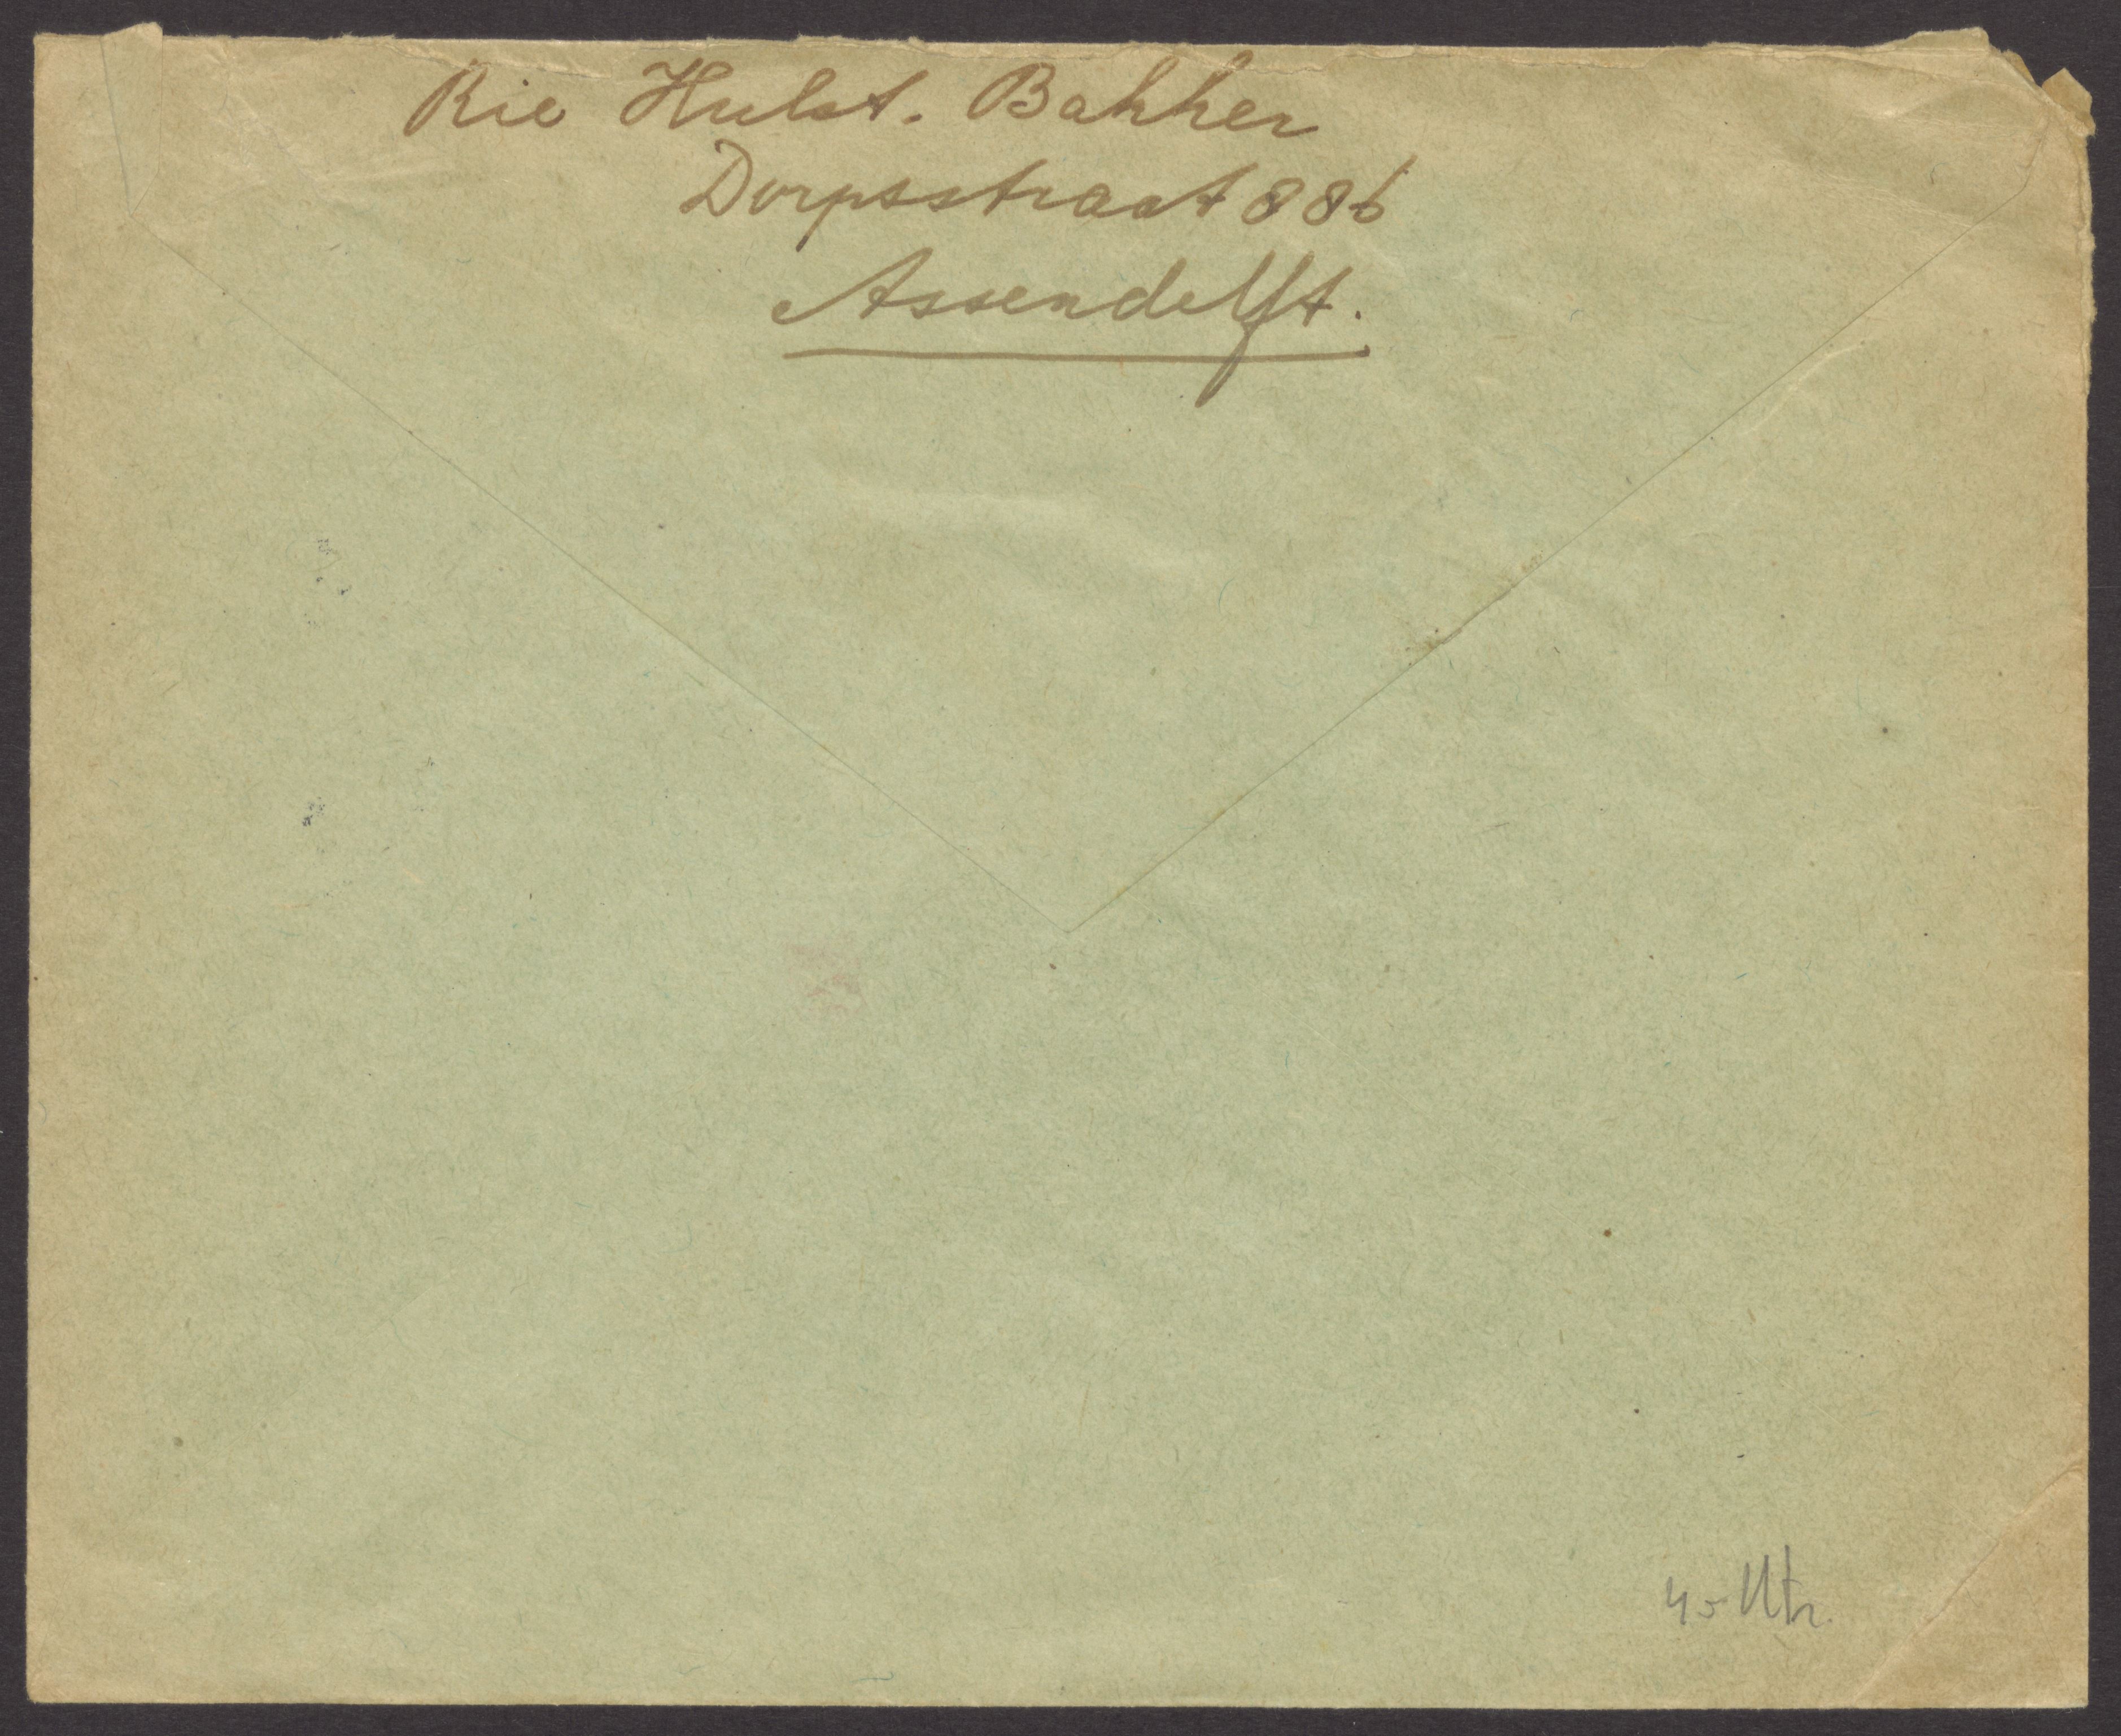 Rie Hulst. Bakker
Dorpsstraat 886
Assendelft.
45 Utr.